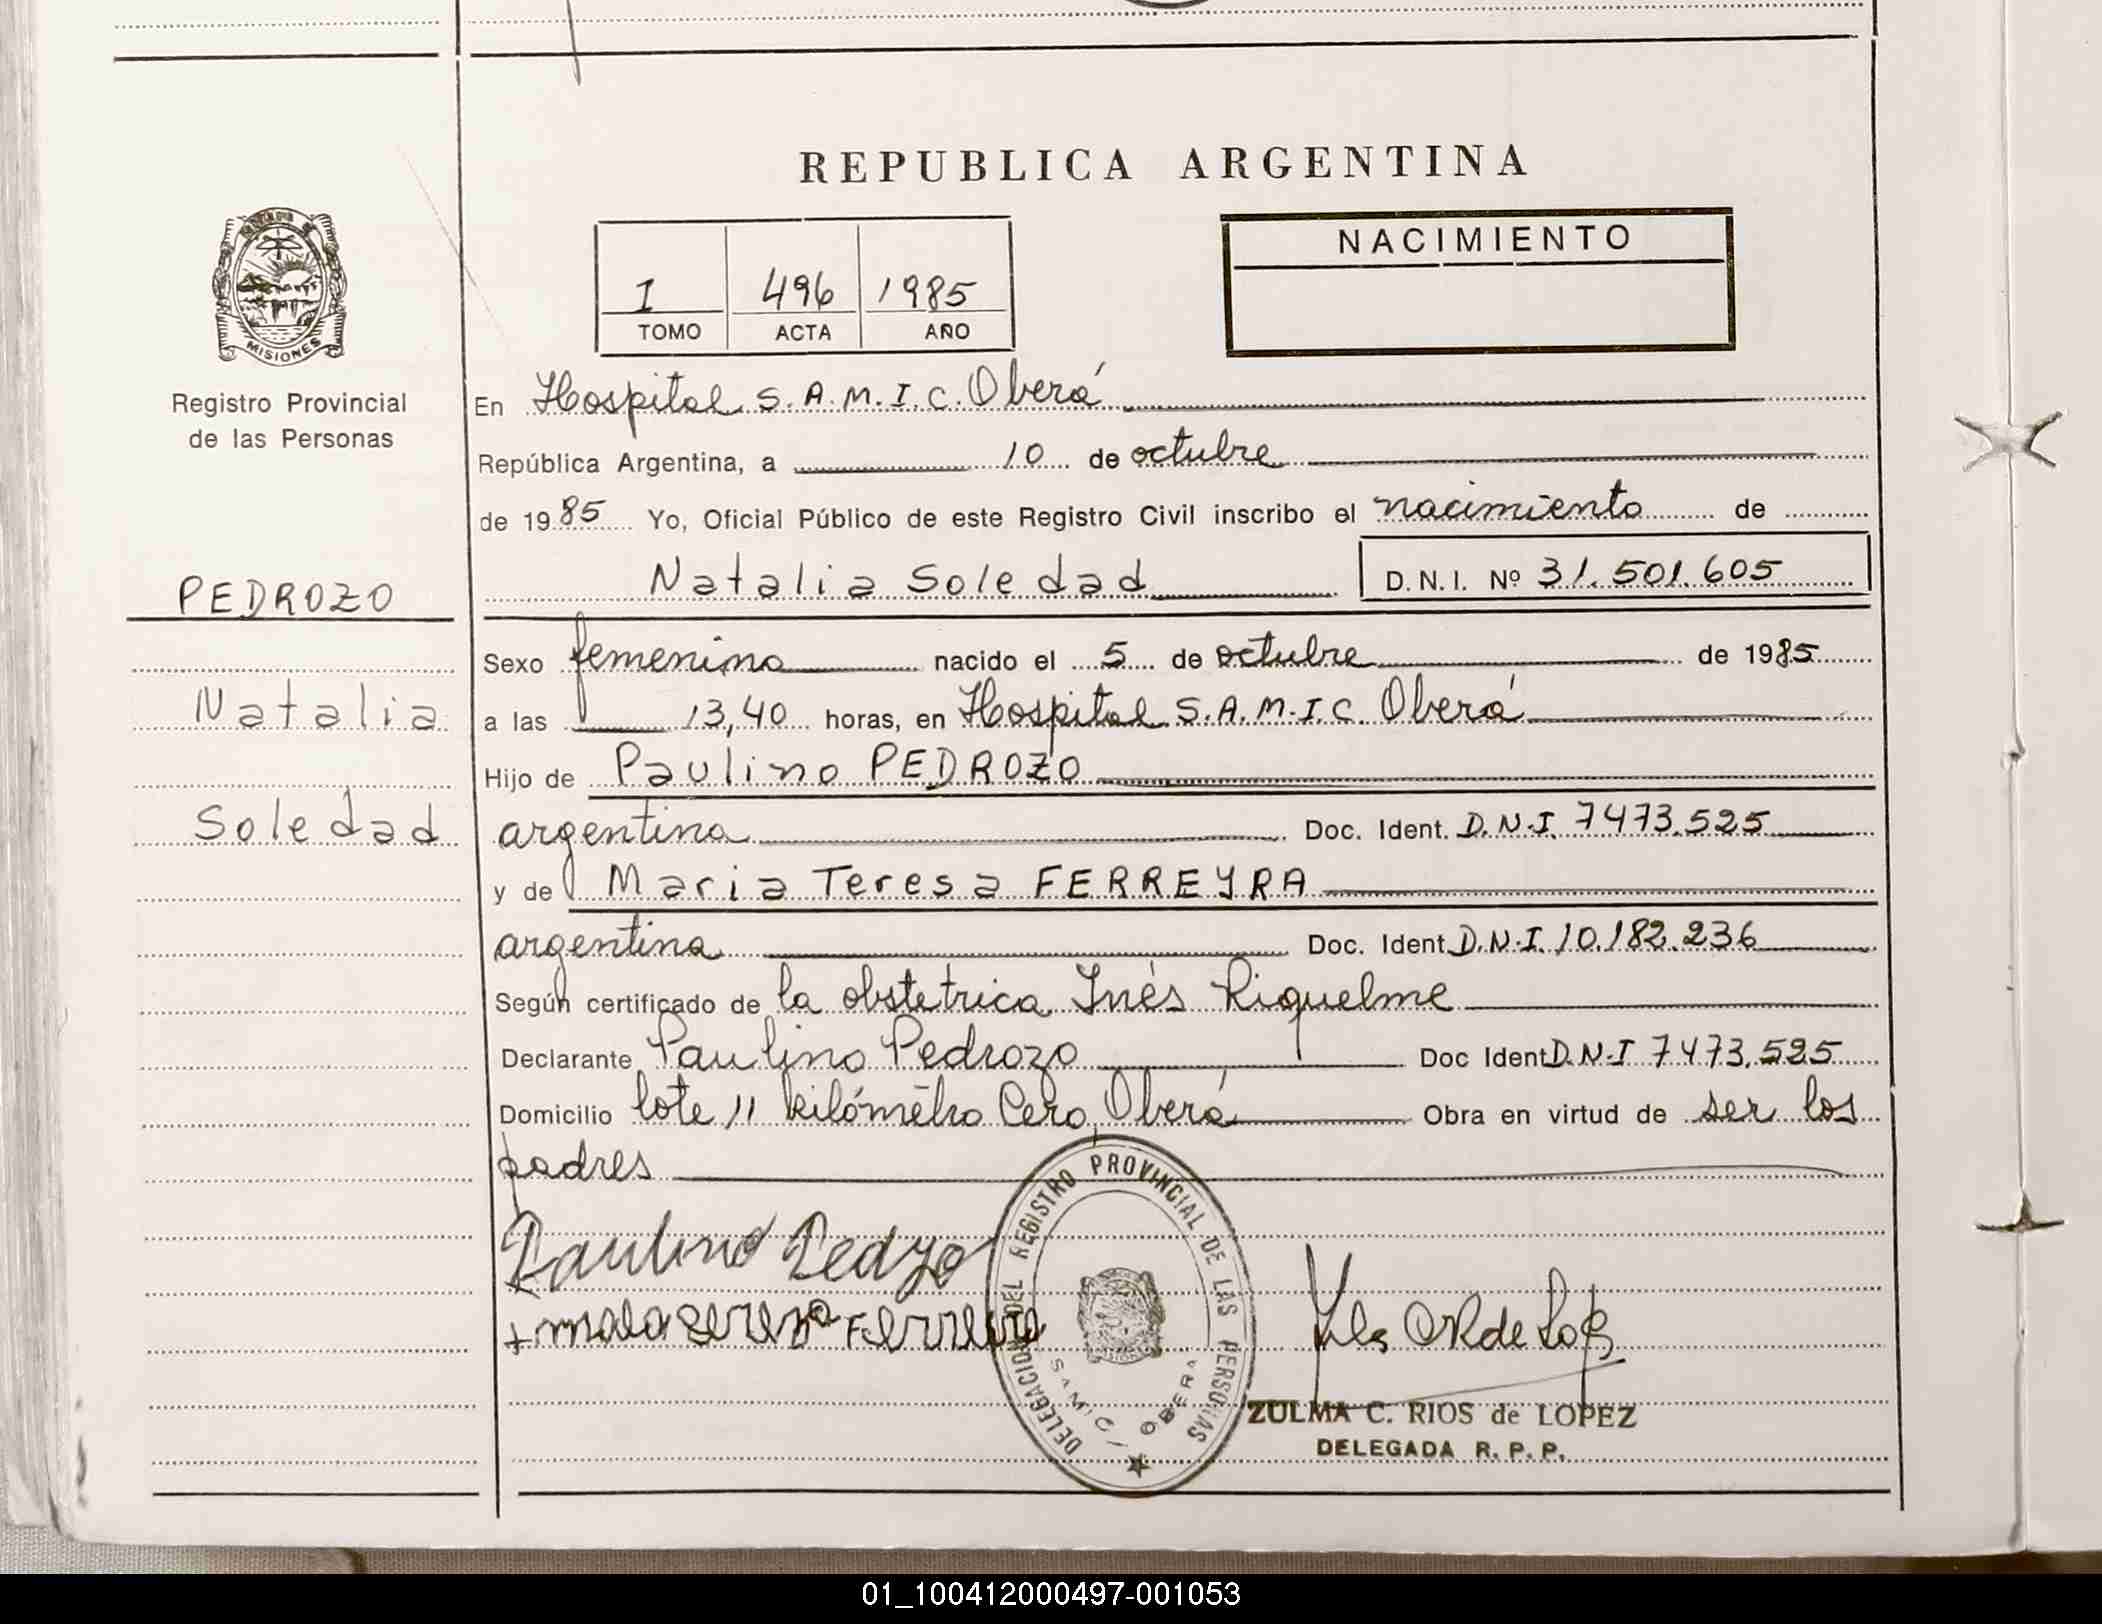 REPUBLICA ARGENTINA
I 496 1985
TOMO ACTA AÑO
NACIMIENTO
MISIONES
Registro Provincial
de las Personas
En Hospital S.A.M.I.C. Oberá
República Argentina, a 10 de octubre
de 1985 Yo, Oficial Público de este Registro Civil inscribo el nacimiento de
Natalia Soledad D.N.I. Nº 31.501.605
PEDROZO
Natalia
Soledad
Sexo femenino nacido el 5 de octubre de 1985
a las 13,40 horas, en Hospital S.A.M.I.C. Oberá
Hijo de Paulino PEDROZO
argentina Doc. Ident. D.N.I. 7473.525
y de Maria Teresa FERREYRA
argentina Doc. Ident. D.N.I. 10.182.236
Según certificado de la obstetrica Inés Riquelme
Declarante Paulino Pedrozo Doc Ident D.N.I 7473.525
Domicilio lote 11 kilómetro Cero, Oberá Obra en virtud de ser los
padres
Paulino
DELEGACION DEL REGISTRO PROVINCIAL DE LAS PERSONAS
SAMIC / OBERA
ZULMA C. RIOS de LOPEZ
DELEGADA R. P. P.
01_100412000497-001053